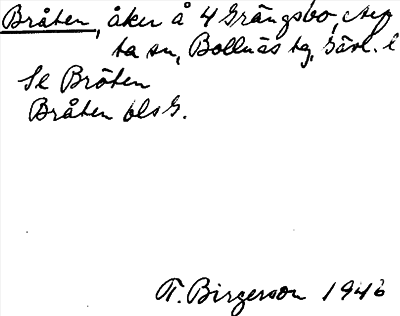 Bråten, åker å 4 Grängsbo, Alf
ta sn, Bollnäs tg, Gävl. l
Se Bröten
Bråten ols G.
T. Birgerson 1946